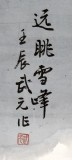 远眺雪峰
壬辰武元作